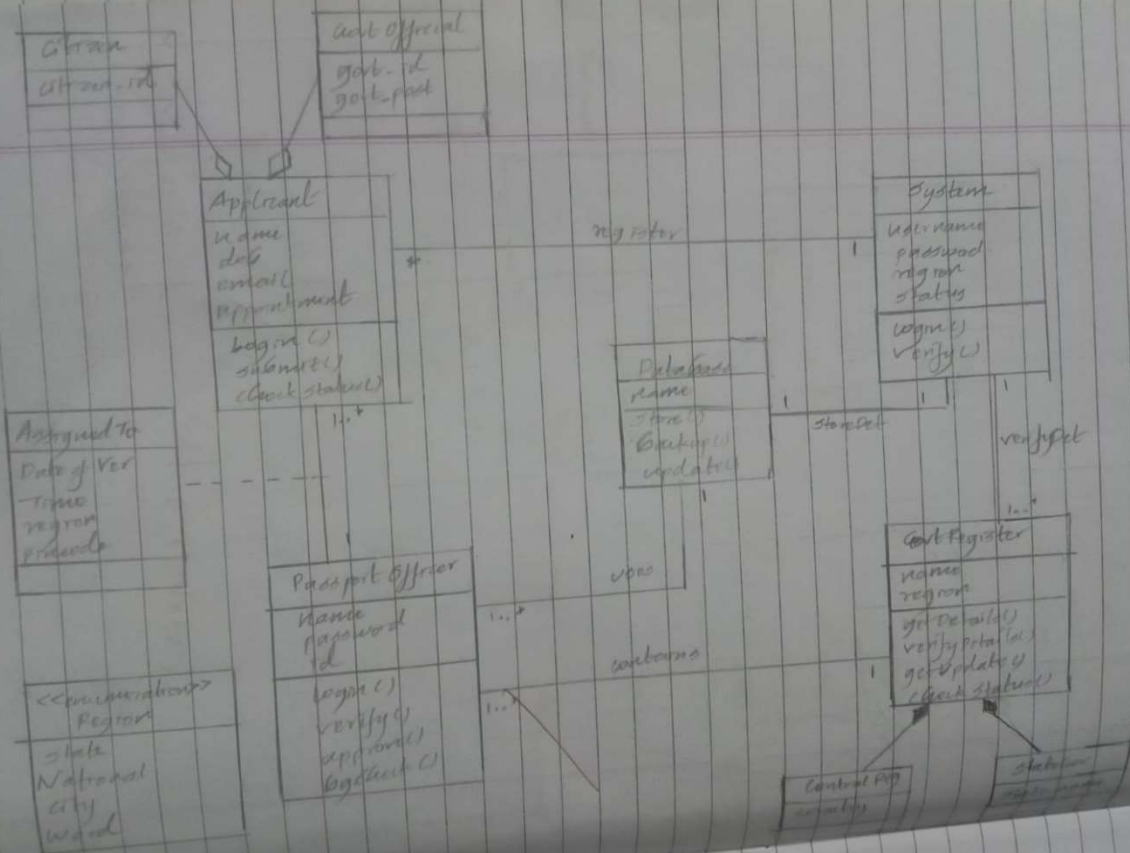 Citizen
citizen_id
Govt Official
govt_id
govt_post
Applicant
name
dob
email
appointment
Login()
submit()
check status()
register
*
1
System
username
password
region
status
Login()
verify()
Database
name
store()
Backup()
update()
1
storeDet
1
1
verifyDet
1..*
Assigned To
Date of Ver
Time
region
pincode
1..*
1
Passport Officer
name
password
id
Login()
verify()
approve()
bgcheck()
1
uses
1..*
contains
1..*
1
Govt Register
name
region
getDetails()
verifyDetails()
getUpdate()
check Status()
<<enumeration>>
Region
State
National
City
Ward
Central Reg
country